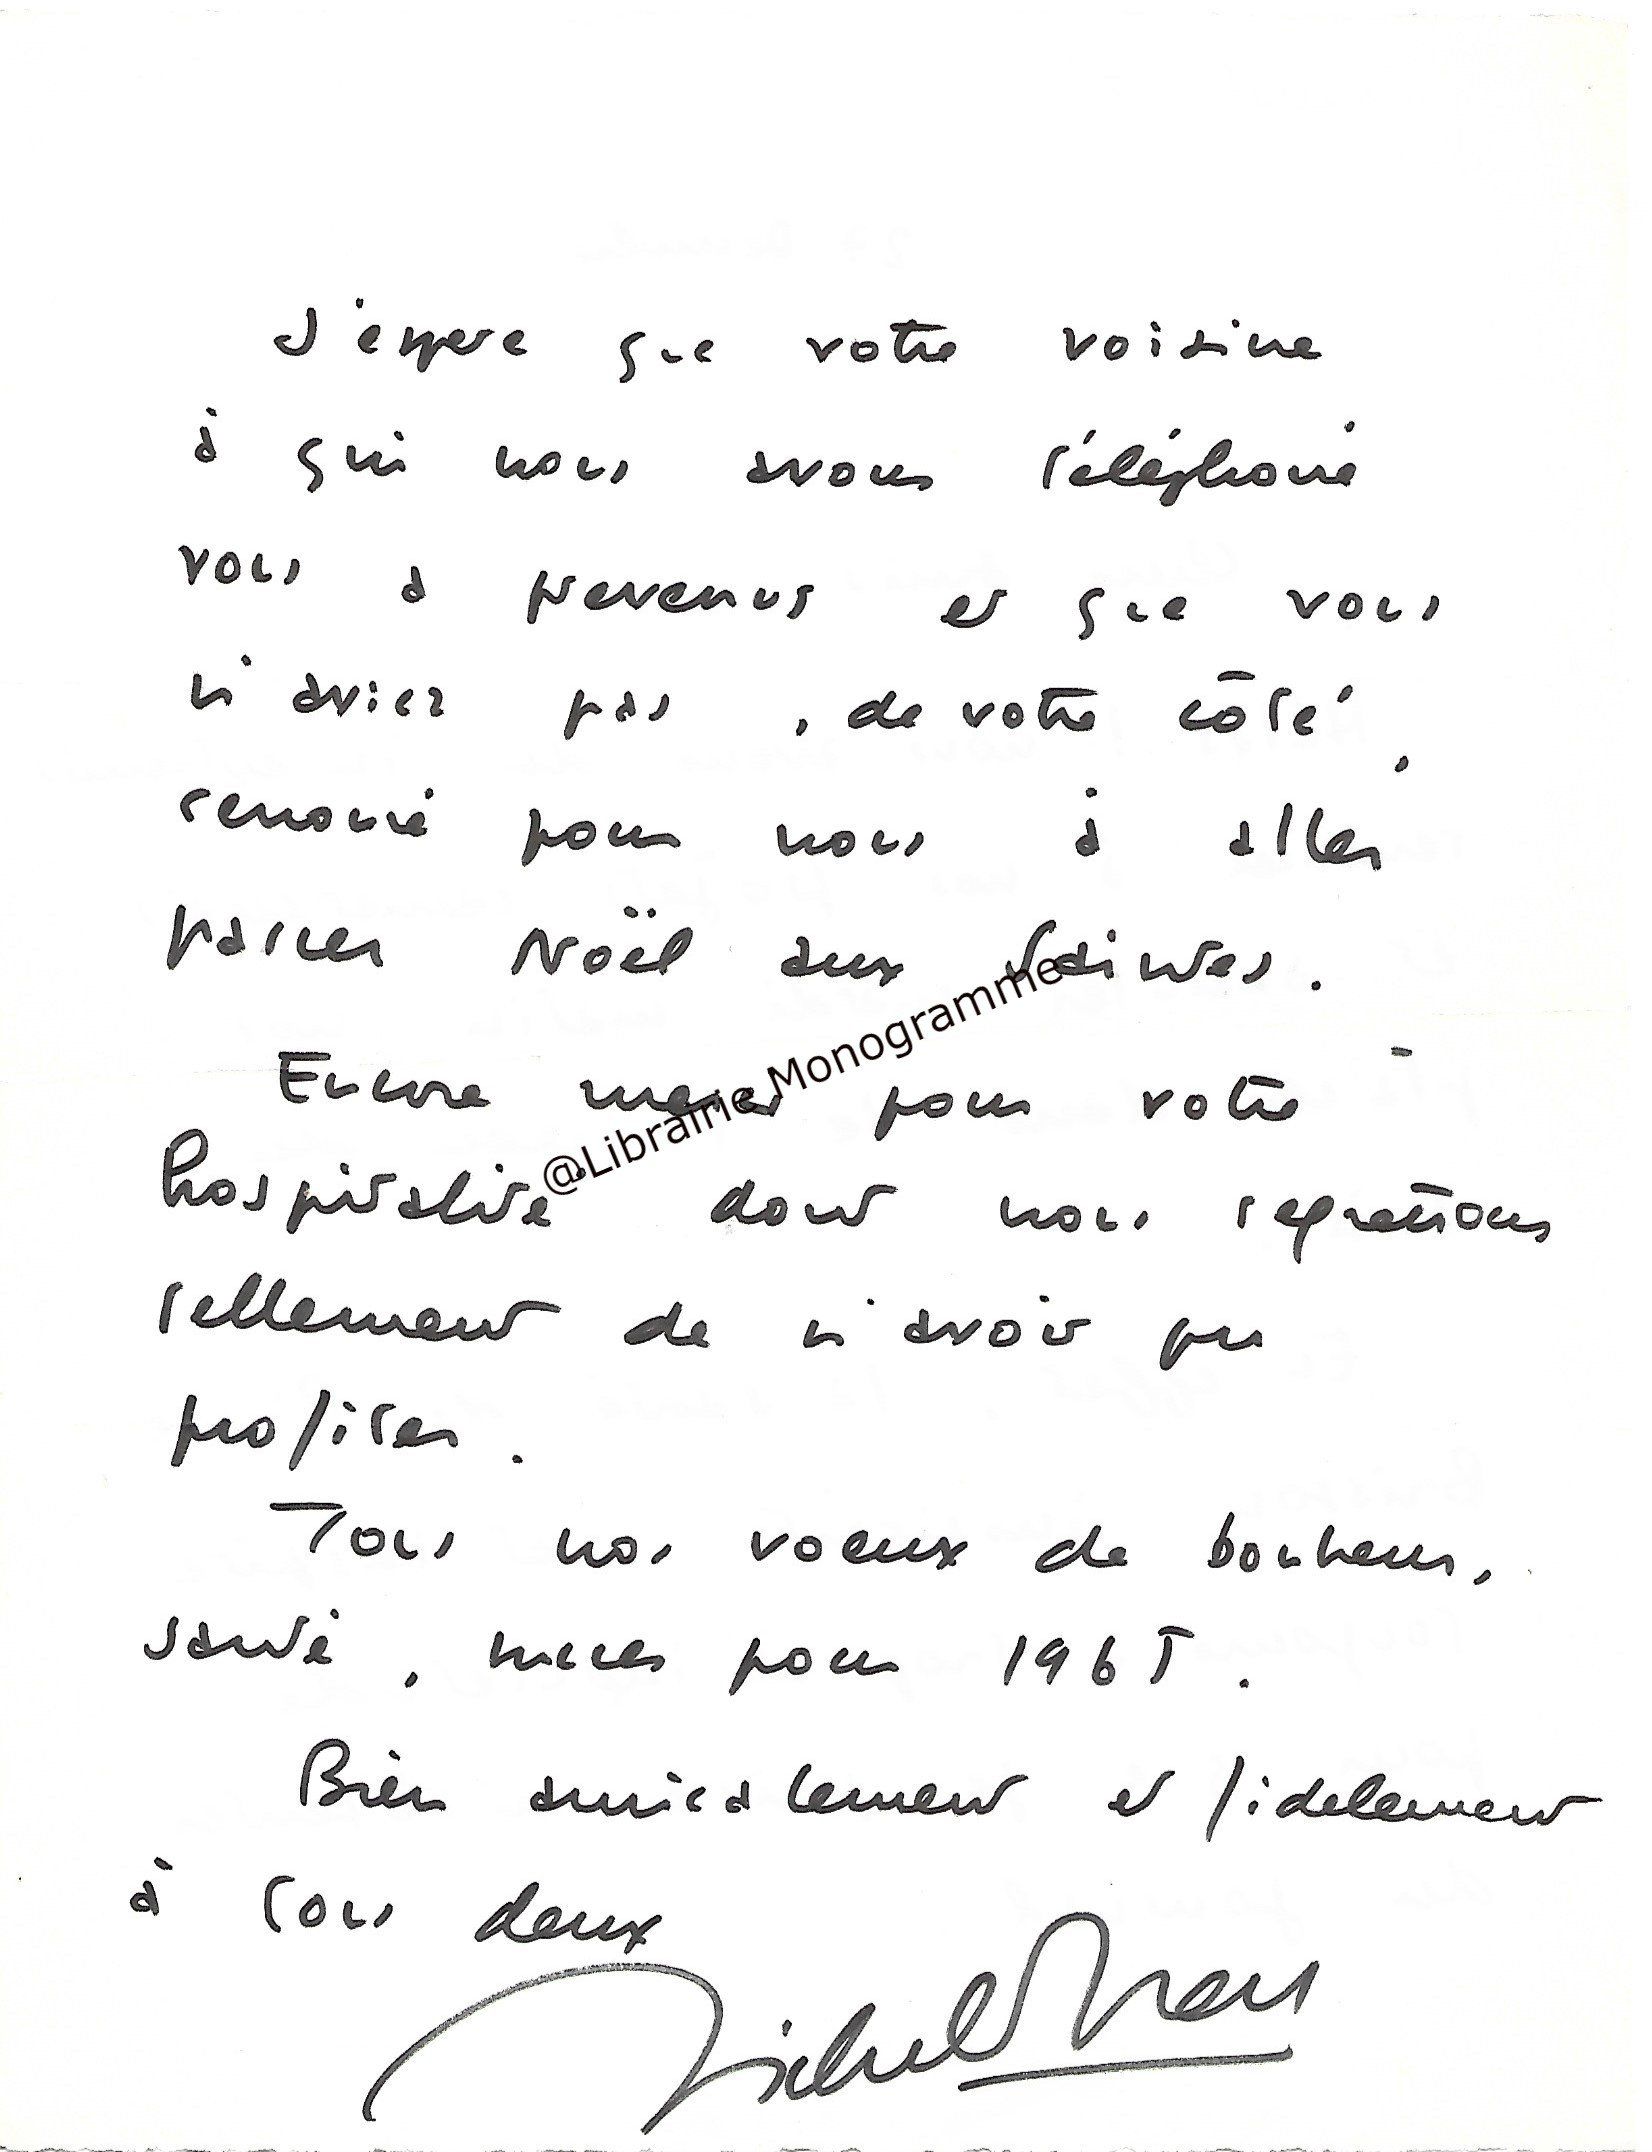 J'espere que votre voisine
à qui nous avons téléphoné
vous a prevenus et que vous
n'aviez pas, de votre côté,
renoncé pour nous à aller
passer Noël aux Vaives.
@Librairie Monogramme
Encore merci pour votre
hospitalité dont nous regrettons
tellement de n'avoir pu
profiter.
Tous nos voeux de bonheur,
santé, succes pour 1965.
Bien amicalement et fidelement
à tous deux
Michel